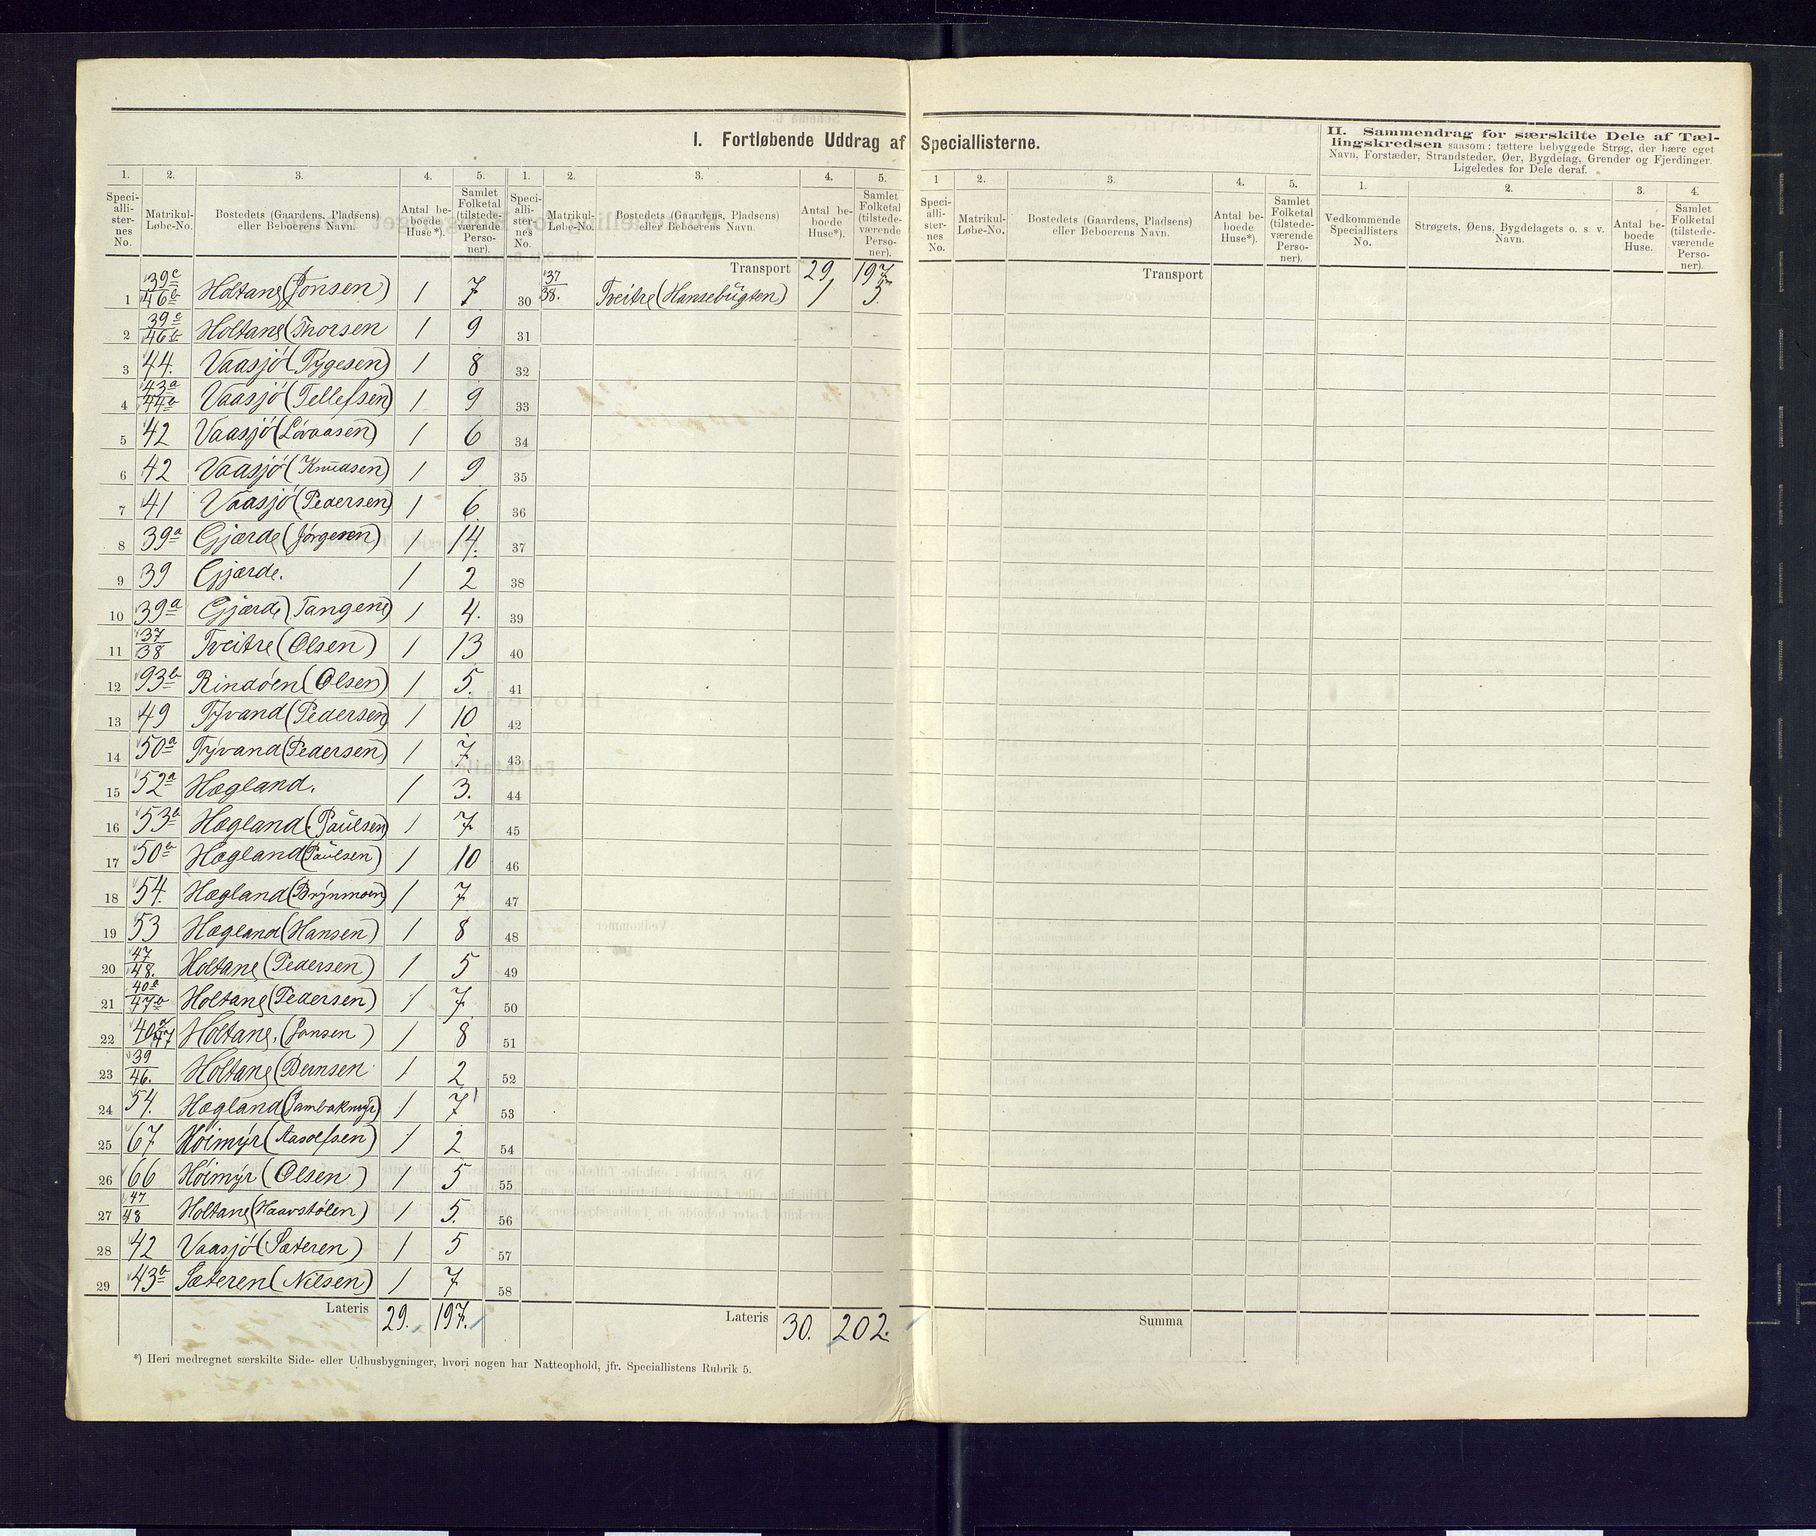 I. Fortløbende Uddrag af Speciallisterne.
II. Sammendrag for særskilte Dele af Tæl-
lingskredsen saasom: tættere bebyggede Strøg, der bære eget
Navn, Forstæder, Strandsteder, Øer, Bygdelag, Grender og Fjerdinger.
Ligeledes for Dele deraf.
1. 2. 3. 4. 5. 1. 2. 3. 4. 5. 1 2. 3. 4. 5. 1. 2. 3. 4.
Speci-alli-ster-nes No. Matrikul-Løbe-No. Bostedets (Gaardens, Pladsens) eller Beboerens Navn. Antal be-boede Huse*). Samlet Folketal (tilstede-værende Perso-ner).
Speci-alli-ster-nes No. Matrikul-Løbe-No. Bostedets (Gaardens, Pladsens) eller Beboerens Navn. Antal be-boede Huse*). Samlet Folketal (tilstede-værende Perso-ner).
Speci-alli-ster-nes No. Matrikul-Løbe-No. Bostedets (Gaardens, Pladsens) eller Beboerens Navn. Antal be-boede Huse*). Samlet Folketal (tilstede-værende Perso-ner).
Vedkommende Speciallisters No. Strøgets, Øens, Bygdelagets o. s. v. Navn. Antal be-boede Huse. Samlet Folketal (tilstede-værende Perso-ner).
Transport 29, 197
Transport
1 39c/46b Holtane (Jonsen) 1 7
30 37/38. Tveitre (Hansebugten) 1 5
2 39c/46b Holtane (Thorsen 1 9
31
3 44. Vaasjö (Tygesen) 1 8
32
4 43a/44b Vaasjö (Tellefsen) 1 9
33
5 42 Vaasjö (Lovaasen) 1 6
34
6 42 Vaasjö (Knudsen) 1 9
35
7 41 Vaasjö (Pedersen) 1 6
36
8 39a Gjærde (Jörgensen) 1 14.
37
9 39 Gjærde. 1 2
38
10 39a Gjærde (Tangene) 1 4.
39
11 37/38 Tveitre (Olsen) 1 13
40
12 93b Rindöen (Olsen) 1 5.
41
13 49 Tyvand (Pedersen) 1 10
42
14 50a Tyvand (Pedersen) 1 7
43
15 52a Hægland. 1 3.
44
16 53b Hægland (Paulsen) 1 7
45
17 50b Hægland (Paulsen) 1 10
46
18 54. Hægland (Brynmoen) 1 7
47
19 53 Hægland (Hansen) 1 8
48
20 47/48. Holtane (Pedersen) 1 5
49
21 Holtane (Pedersen) 1 7
50
22 Holtane, (Jonsen) 1 8
51
23 39/46. Holtane (Bernsen 1 2
52
24 54. Hægland 1 7
53
25 67 Höimyr (Aasolfsen) 1 2
54
26 66 Höimyr (Olsen) 1 5
55
27 47/48 Holtane (Haavstölen) 1 5.
56
28 42 Vaasjö (Sæteren) 1 5
57
29 43b Sæteren (Nilsen) 1 7
58
Lateris 29. 197.
Lateris 30. 202.
Summa
*) Heri medregnet særskilte Side- eller Udhusbygninger, hvori nogen har Natteophold, jfr. Speciallistens Rubrik 5.